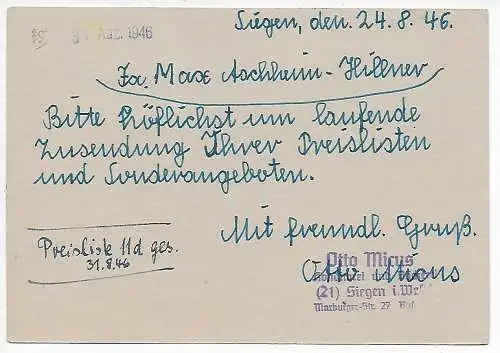 Siegen, den. 24. 8. 46.
Aug. 1946
Fa. Max Aschheim-Hillner
Bitte höflichst um laufende
Zusendung Ihrer Preislisten
und Sonderangeboten.
Mit freundl. Gruß.
Otto Micus
Otto Micus
(21) Siegen i. W
Marburger-Str. 27
Preisliste 11d ges.
31.8.46